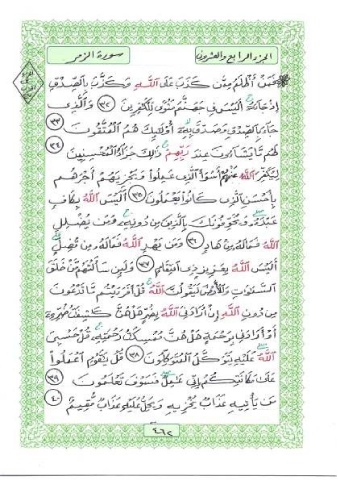 الجزء الرابع والعشرون
سورة الزمر
فَمَنْ أَظْلَمُ مِمَّن كَذَبَ عَلَى اللَّهِ وَكَذَّبَ بِالصِّدْقِ
إِذْ جَاءَهُ أَلَيْسَ فِي جَهَنَّمَ مَثْوًى لِّلْكَافِرِينَ ٣٢ وَالَّذِي
جَاءَ بِالصِّدْقِ وَصَدَّقَ بِهِ أُولَٰئِكَ هُمُ الْمُتَّقُونَ ٣٣
لَهُم مَّا يَشَاءُونَ عِندَ رَبِّهِمْ ذَٰلِكَ جَزَاءُ الْمُحْسِنِينَ ٣٤
لِيُكَفِّرَ اللَّهُ عَنْهُمْ أَسْوَأَ الَّذِي عَمِلُوا وَيَجْزِيَهُمْ أَجْرَهُم
بِأَحْسَنِ الَّذِي كَانُوا يَعْمَلُونَ ٣٥ أَلَيْسَ اللَّهُ بِكَافٍ
عَبْدَهُ وَيُخَوِّفُونَكَ بِالَّذِينَ مِن دُونِهِ وَمَن يُضْلِلِ
اللَّهُ فَمَا لَهُ مِنْ هَادٍ ٣٦ وَمَن يَهْدِ اللَّهُ فَمَا لَهُ مِن مُّضِلٍّ
أَلَيْسَ اللَّهُ بِعَزِيزٍ ذِي انتِقَامٍ ٣٧ وَلَئِن سَأَلْتَهُم مَّنْ خَلَقَ
السَّمَاوَاتِ وَالْأَرْضَ لَيَقُولُنَّ اللَّهُ قُلْ أَفَرَأَيْتُم مَّا تَدْعُونَ
مِن دُونِ اللَّهِ إِنْ أَرَادَنِيَ اللَّهُ بِضُرٍّ هَلْ هُنَّ كَاشِفَاتُ ضُرِّهِ
أَوْ أَرَادَنِي بِرَحْمَةٍ هَلْ هُنَّ مُمْسِكَاتُ رَحْمَتِهِ قُلْ حَسْبِيَ
اللَّهُ عَلَيْهِ يَتَوَكَّلُ الْمُتَوَكِّلُونَ ٣٨ قُلْ يَا قَوْمِ اعْمَلُوا
عَلَىٰ مَكَانَتِكُمْ إِنِّي عَامِلٌ فَسَوْفَ تَعْلَمُونَ ٣٩
مَن يَأْتِيهِ عَذَابٌ يُخْزِيهِ وَيَحِلُّ عَلَيْهِ عَذَابٌ مُّقِيمٌ ٤٠
٤٦٢